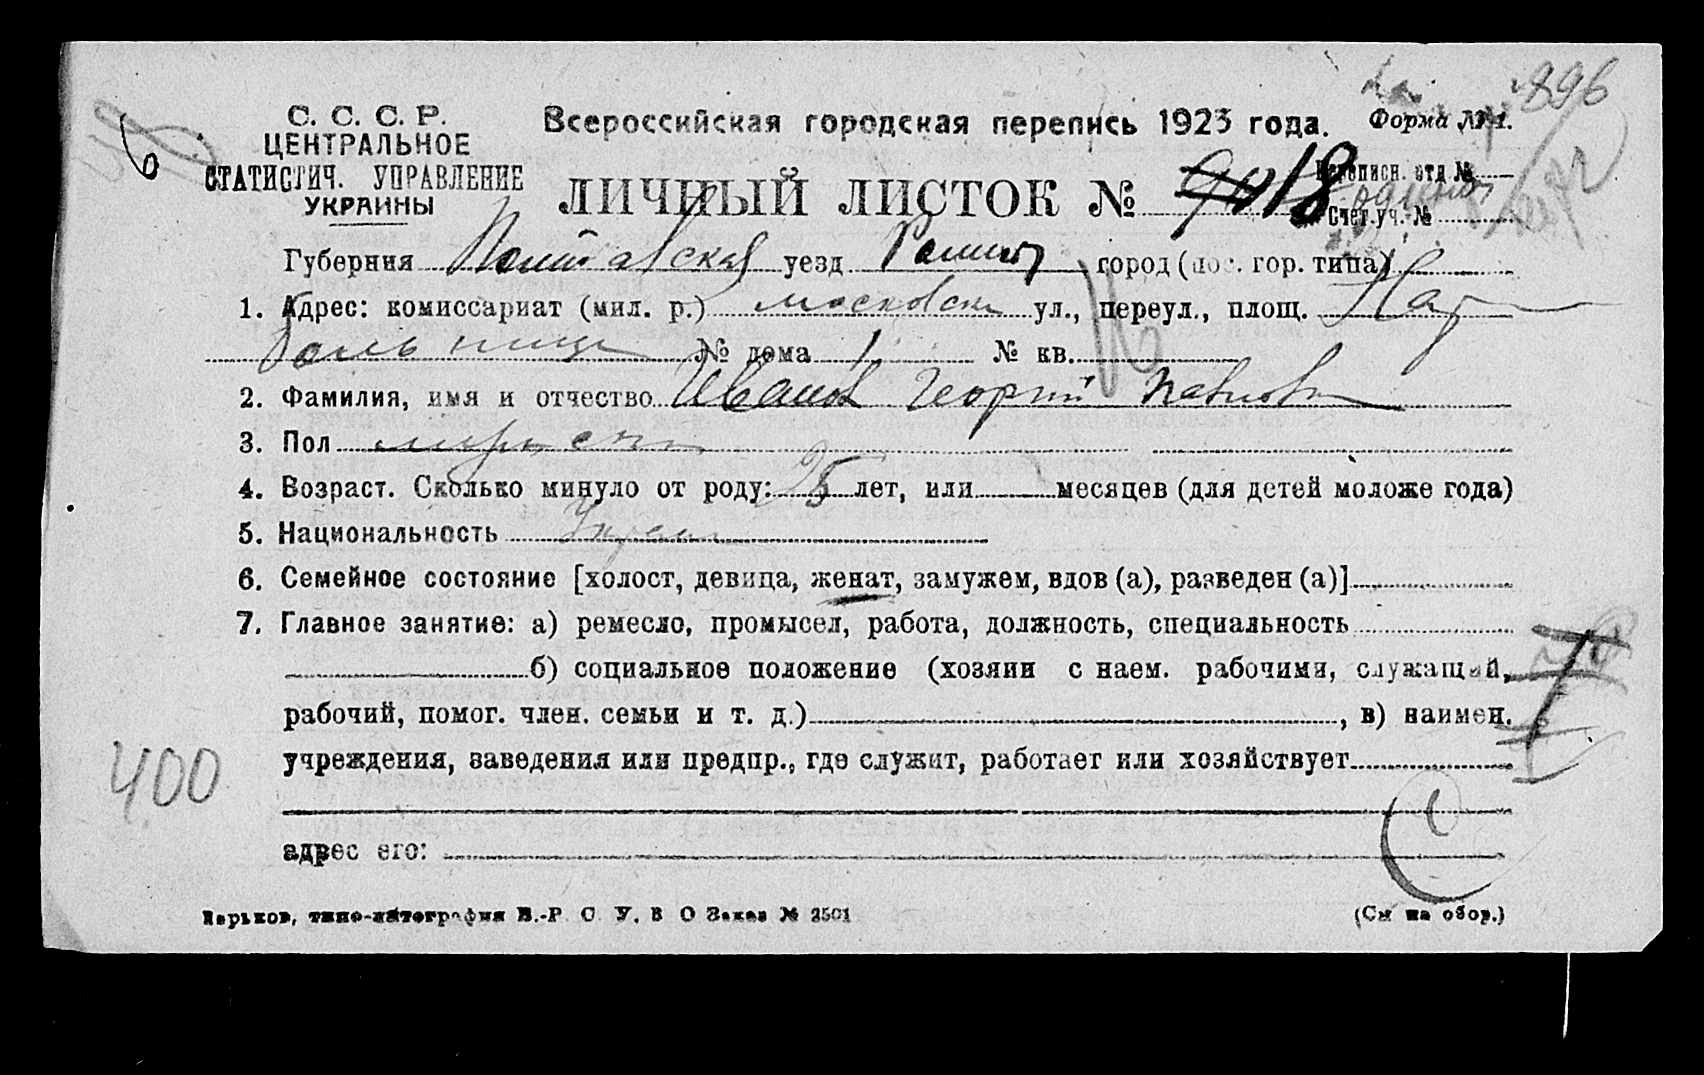 896
С. С. С. Р.
ЦЕНТРАЛЬНОЕ
СТАТИСТИЧ. УПРАВЛЕНИЕ
УКРАИНЫ
Всероссийская городская перепись 1923 года.
Форма № 1.
ЛИЧНЫЙ ЛИСТОК № 18
Переписн. отд. №
Счет. уч. №
Губерния Полтавская уезд город (пос. гор. типа)
1. Адрес: комиссариат (мил. р.) московск ул., переул., площ. Нар
больница № дома 1 № кв.
2. Фамилия, имя и отчество Иванов Георгий Павлович
3. Пол мужск
4. Возраст. Сколько минуло от роду: 25 лет, или месяцев (для детей моложе года)
5. Национальность Украин
6. Семейное состояние [холост, девица, женат, замужем, вдов (а), разведен (а)]
7. Главное занятие: а) ремесло, промысел, работа, должность, специальность
б) социальное положение (хозяин с наем. рабочими, служащий,
рабочий, помог. член. семьи и т. д.) , в) наимен.
учреждения, заведения или предпр., где служит, работает или хозяйствует
400
адрес его:
Харьков, типо-литография В.-Р. С. У. В. О Заказ № 2501
(См на обор.)